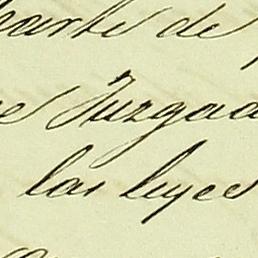 parte de
Juzgad
las leyes